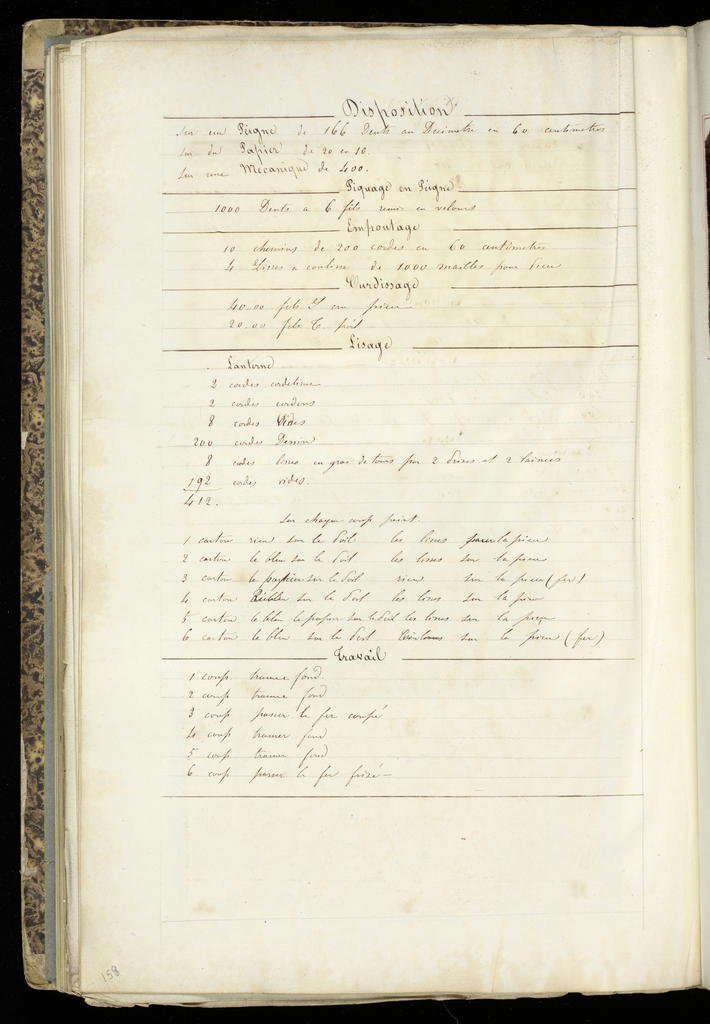 Disposition
Sur un Peigne de 166 Dents au Décimètre en 60 centimetres
Sur du Papier de 20 en 10.
Sur une Mécanique de 400.
Piquage en Peigne
1000 Dents a 6 fils remis en velours
Empoutage
10 chemins de 200 cordes en 60 centimetres
4 Lisses a coulisse de 1000 mailles pour pieu
Ourdissage
40.00 fils pieu
20.00 fils poil
Lisage
Lanterne
2 cordes cordeline
2 cordes cordons
8 cordes Vides
200 cordes Dessin
8 cordes lisses en gros de tours par 2 prises et 2 laissées
192 cordes vides.
412.
Sur chaque coup peint.
1 carton rien sur le Poil les lisses sur la pieu
2 carton le bleu sur le Poil les lisses sur la pieu
3 carton le sur le Poil rien sur la pieu (fer)
4 carton sur le Poil les lisses sur la pieu
5 carton le bleu sur le Poil les lisses sur la pieu
6 carton le bleu sur le Poil sur la pieu (fer)
Travail
1 coup tramer fond.
2 coup tramer fond
3 coup passer le fer coupé
4 coup tramer fond
5 coup tramer fond
6 coup passer le fer frisé
158